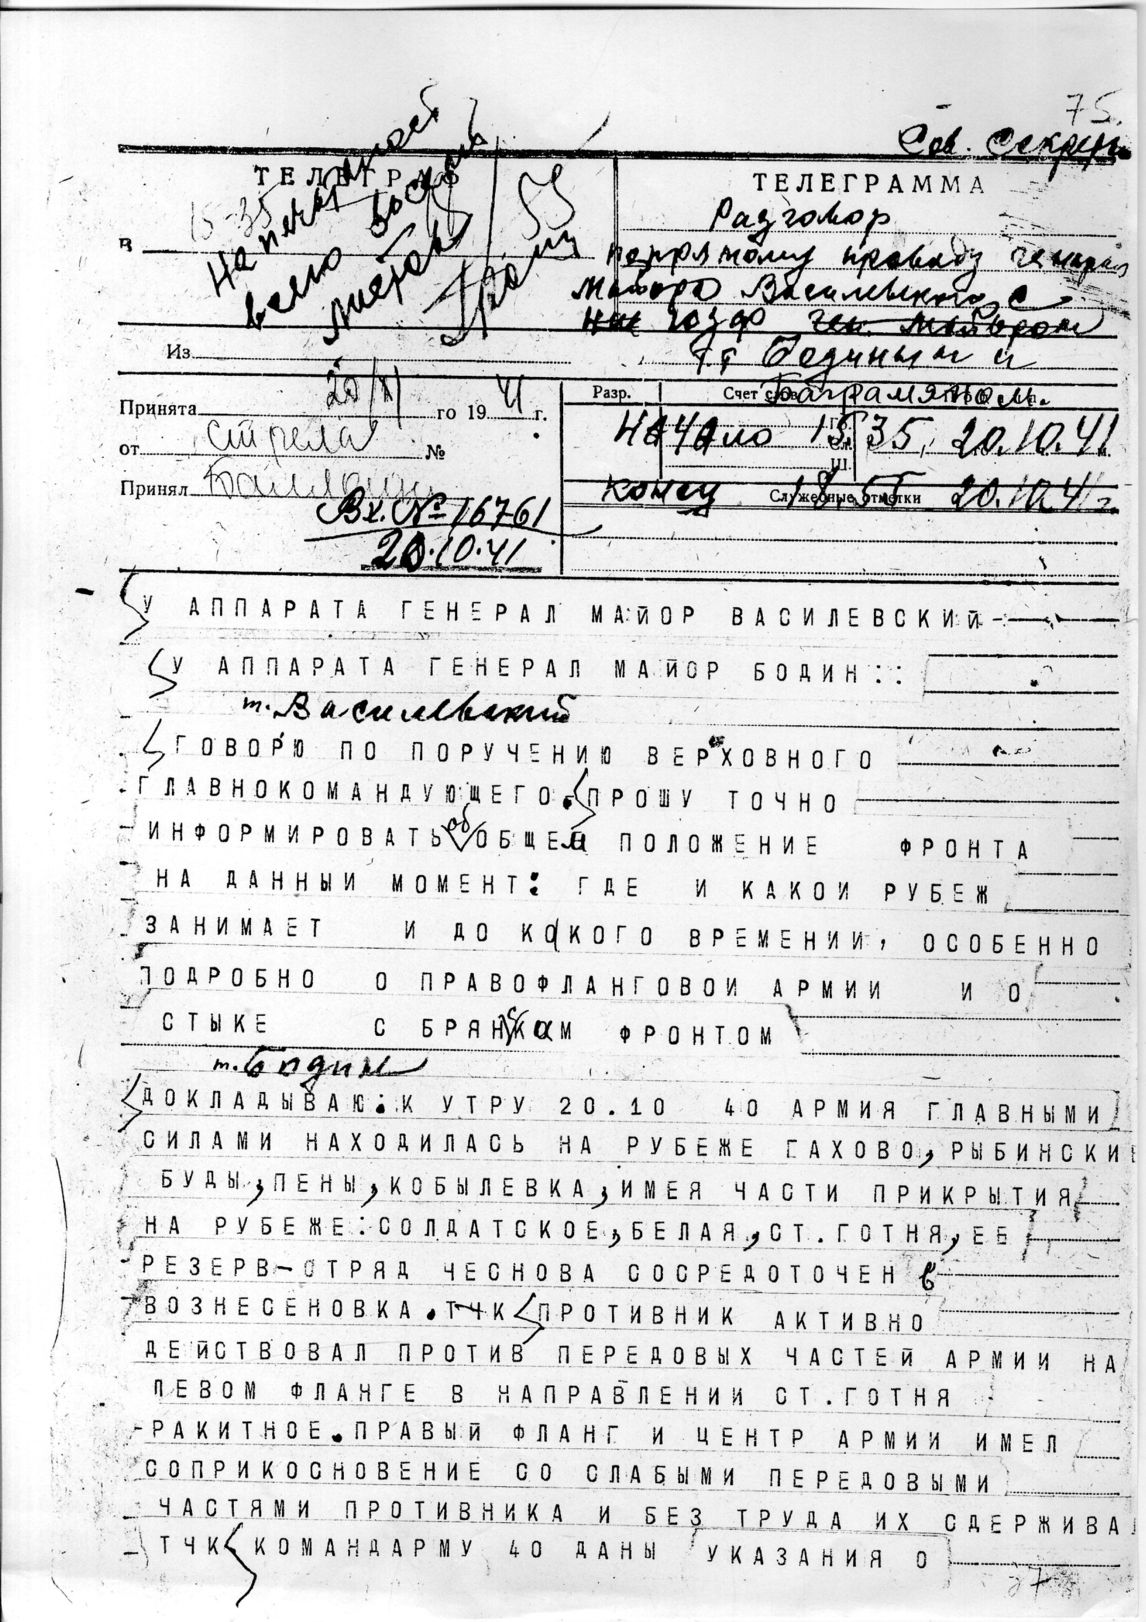 75.
Сов. Секретн
ТЕЛЕГРАФ
15-35
Напечатать
всего восемь
55
В
ТЕЛЕГРАММА
Разговор
по прямому проводу генерал
майора Василевского с
ЮЗФ ген. майором
т.т. Бодиным и
Баграмяном.
Из
Принята 20/XI го 1941 г.
от Стрела №
Принял
Вх. № 16761
20.10.41
Разр.
Счет слов
Ш.
Начало 15.35, 20.10.41
конец 18.55 20.10.41 г.
Служебные отметки
У АППАРАТА ГЕНЕРАЛ МАЙОР ВАСИЛЕВСКИЙ-
У АППАРАТА ГЕНЕРАЛ МАЙОР БОДИН::
т. Василевский
ГОВОРЮ ПО ПОРУЧЕНИЮ ВЕРХОВНОГО
ГЛАВНОКОМАНДУЮЩЕГО. ПРОШУ ТОЧНО
ИНФОРМИРОВАТЬ об ОБЩЕМ ПОЛОЖЕНИЕ ФРОНТА
НА ДАННЫИ МОМЕНТ: ГДЕ И КАКОИ РУБЕЖ
ЗАНИМАЕТ И ДО КОКОГО ВРЕМЕНИИ, ОСОБЕННО
ПОДРОБНО О ПРАВОФЛАНГОВОИ АРМИИ И О
СТЫКЕ С БРЯНСКОМ ФРОНТОМ
т. Бодин
ДОКЛАДЫВАЮ: К УТРУ 20.10 40 АРМИЯ ГЛАВНЫМИ
СИЛАМИ НАХОДИЛАСЬ НА РУБЕЖЕ ГАХОВО, РЫБИНСКИЕ
БУДЫ, ПЕНЫ, КОБЫЛЕВКА, ИМЕЯ ЧАСТИ ПРИКРЫТИЯ
НА РУБЕЖЕ: СОЛДАТСКОЕ, БЕЛАЯ, СТ. ГОТНЯ, ЕЕ
РЕЗЕРВ-ОТРЯД ЧЕСНОВА СОСРЕДОТОЧЕН в
ВОЗНЕСЕНОВКА. ТЧК ПРОТИВНИК АКТИВНО
ДЕЙСТВОВАЛ ПРОТИВ ПЕРЕДОВЫХ ЧАСТЕЙ АРМИИ НА
ЛЕВОМ ФЛАНГЕ В НАПРАВЛЕНИИ СТ. ГОТНЯ
-РАКИТНОЕ. ПРАВЫЙ ФЛАНГ И ЦЕНТР АРМИИ ИМЕЛ
СОПРИКОСНОВЕНИЕ СО СЛАБЫМИ ПЕРЕДОВЫМИ
ЧАСТЯМИ ПРОТИВНИКА И БЕЗ ТРУДА ИХ СДЕРЖИВАЛ
ТЧК КОМАНДАРМУ 40 ДАНЫ УКАЗАНИЯ О